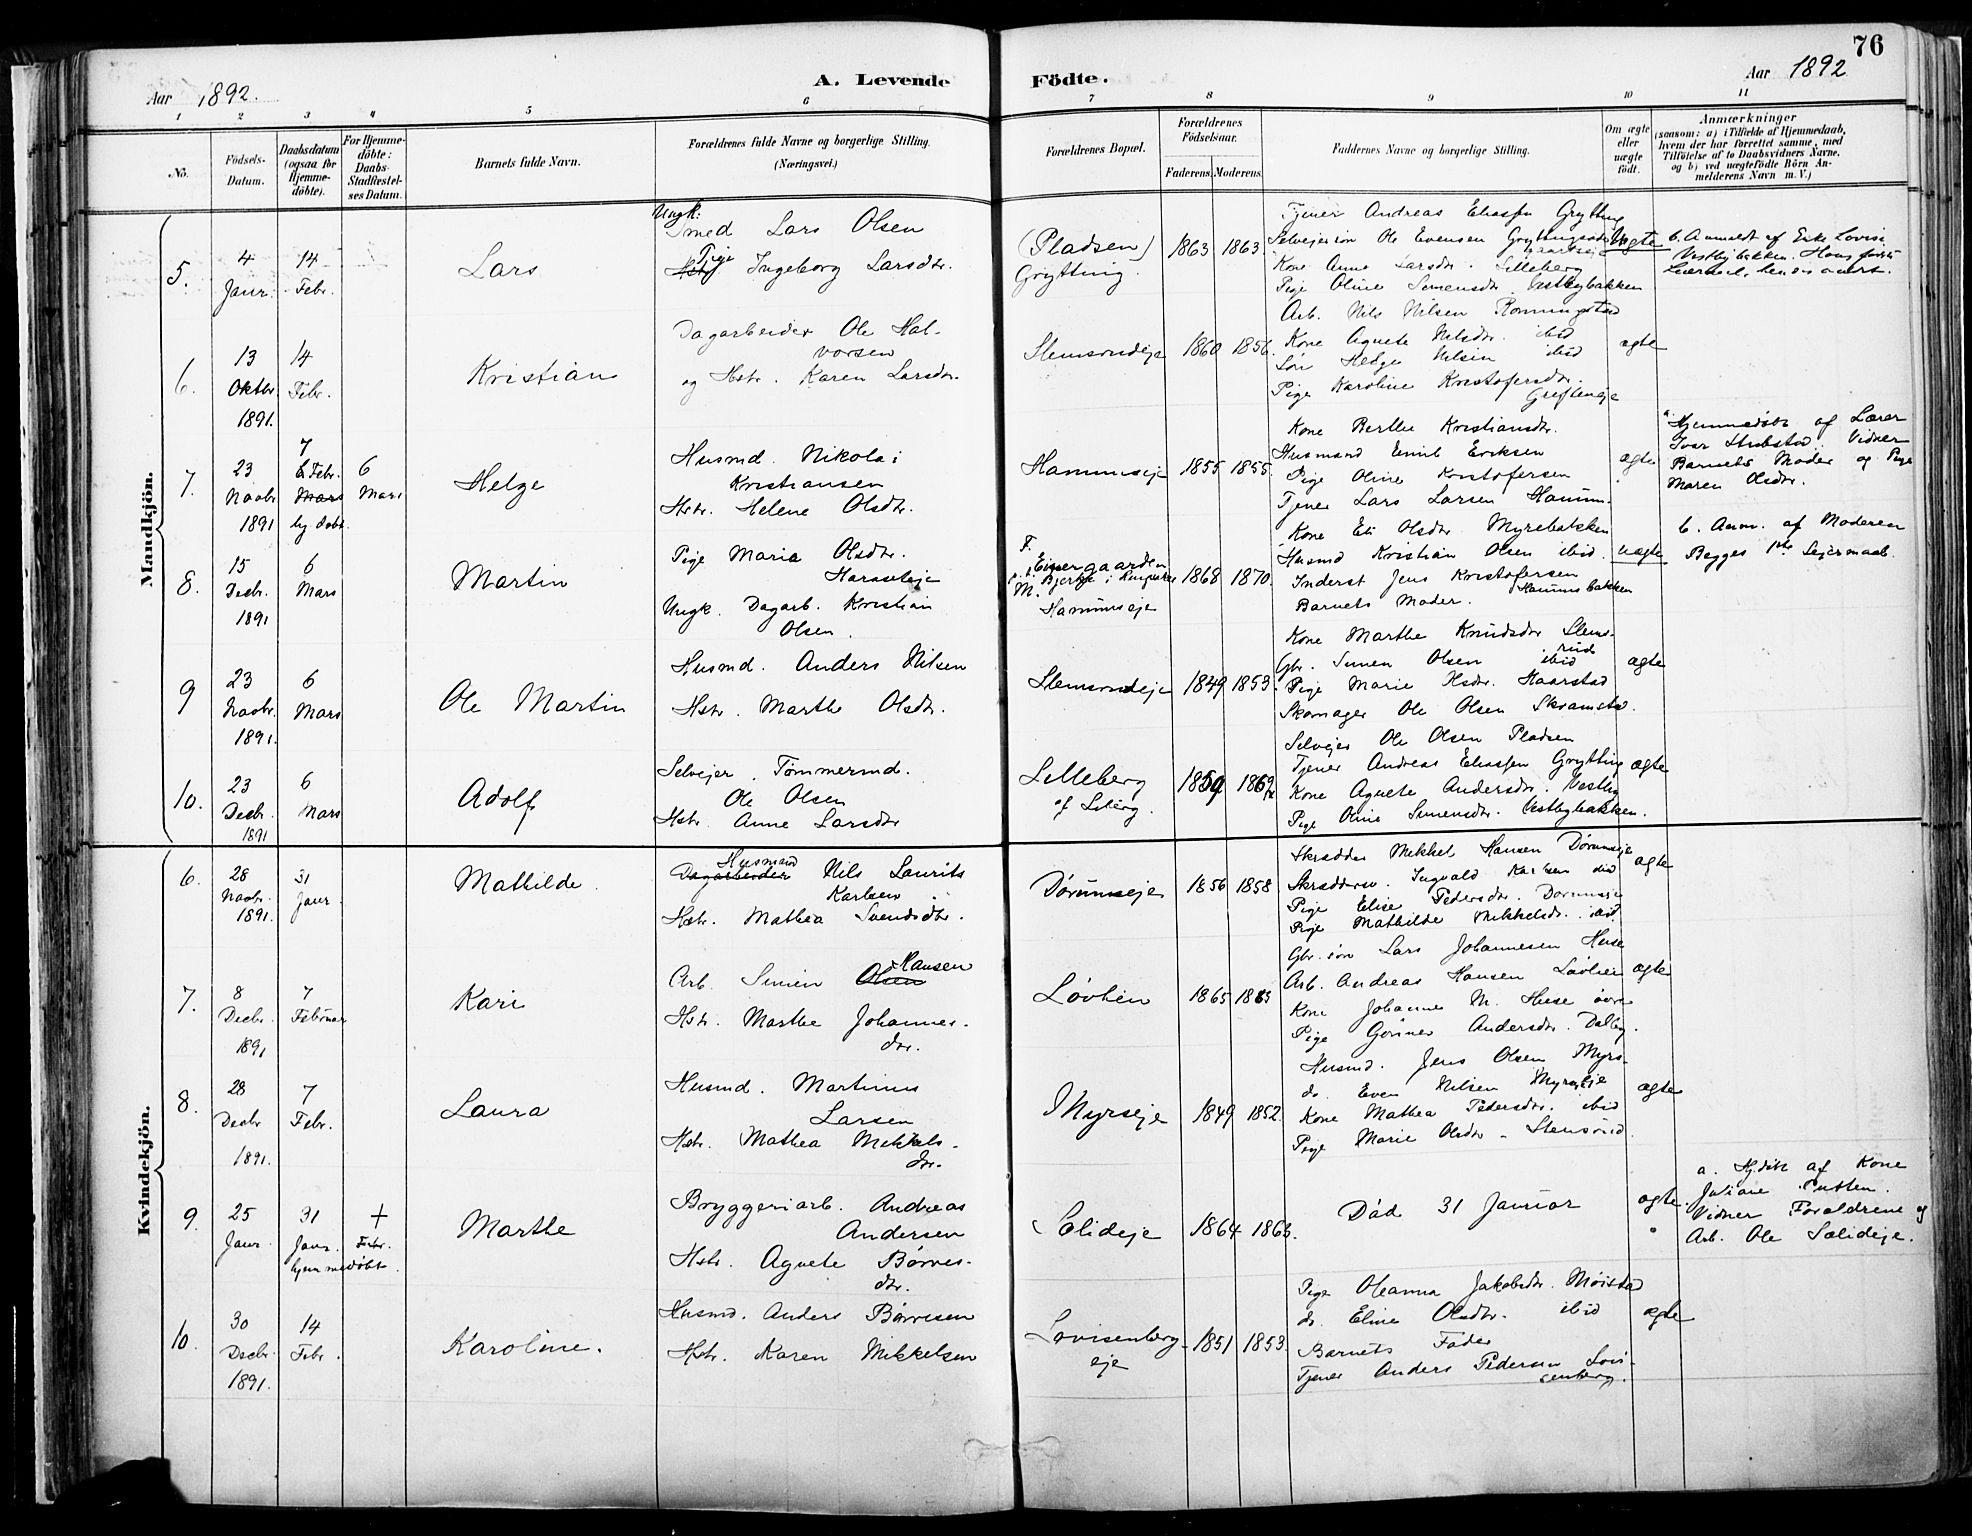 76
Aar 1892.
A. Levende Födte.
Aar 1892
1 2 3 4 5 6 7 8 9 10 11
No.
Födsels-Datum.
Daabsdatum (ogsaa for Hjemme-döbte).
For Hjemme-döbte: Daabs-Stadfæstel-ses Datum.
Barnets fulde Navn.
Forældrenes fulde Navne og borgerlige Stilling.
(Næringsvei.)
Forældrenes Bopæl.
Forældrenes Födselsaar.
Faderens. Moderens.
Faddernes Navne og borgerlige Stilling.
Om ægte eller uægte födt.
Anmærkninger
(saasom: a) i Tilfælde af Hjemmedaab,
hvem der har forrettet samme, med
Tilföielse af to Daabsvidners Navne,
og b) ved uægtefödte Börn An-
melderens Navn m. V.)
Mandkjön.
5.
4 Janr.
14 Febr.
Lars
Ungk:
Smed Lars Olsen
Pige
Ingeborg Larsdtr.
(Pladsen)
Grytting.
1863 1863.
Tjener Andreas Eliassen Grytting
Selveiersön Ole Evensen
Kone Anne Larsdr. Lilleberg
Pige Oline Simensdr. Vestbybakken
uægte
b. Anmeldt af Enke Lovise
Vestbybakken. Hans første
6.
13 Oktbr. 1891.
14 Febr.
Kristian
Dagarbeider Ole Hal-
vorsen
og Hstr. Karen Larsdr.
Stemsrudeje
1860 1856.
Arb. Nils Nilsen
Kone Agnete Nilsdr. ibid
Sön Helge Nilsen ibid
Pige Karoline Kristofersdr.
ægte
7.
23 Novbr. 1891
7 Febr.
Mars
hj. döbt.
6 Mars
Helge
Husmd. Nikolai
Kristiansen
Hstr. Helene Olsdtr.
Hammseje
1855 1855.
Kone Berthe Kristiansdr.
Husmand Emil Eriksen
Pige Oline Kristofersen
Tjener Lars Larsen Hamm.
ægte
a. Hjemmedöbt af Lærer
Ivar Stubstad. Vidner
Barnets Moder og Pige
Maren Olsdr.
8.
15 Decbr. 1891
6 Mars
Martin
Pige Maria Olsdtr.
Ungk. Dagarb. Kristian
Olsen.
F.
M.
Hammseje
1868 1870.
Kone Eli Olsdtr. Myrebakken
Husmd Kristian Olsen ibid.
Inderst Jens Kristofersen
Hammsbakken
Barnets Moder.
uægte
b. Anm. af Moderen
Begges 1ste Leiermaal.
9
23 Novbr. 1891.
6 Mars
Ole Martin
Husmd. Anders Nilsen
Hstr. Marthe Olsdtr.
Stemsrudeje
1849 1853.
Kone Marthe Knudsdr Stems-
rud
Gbr. Simen Olsen ibid
Pige Marie Olsdr. Haarstad
Skomager Ole Olsen Skramstad.
ægte
10.
23 Decbr. 1891
6 Mars
Adolf
Selvejer. Tömmermd.
Ole Olsen
Hstr. Anne Larsdtr
Lilleberg
af Liberg.
1859 1862
Selvejer Ole Olsen Pladsen
Tjener Andreas Eliassen Grytting
Kone Agnete Andersdr. Vestby
Pige Oline Simensdr. Vestbybakken.
ægte
Kvindekjön.
6.
28 Novbr. 1891.
31 Janr.
Mathilde.
Husmand
Dagarbeider Nils Laurits
Karlsen
Hstr. Mathea Svendsdtr.
Dörumseje
1856 1858.
Skrædder Mikkel Hansen Dörumseje
Skrædderm. Ingvald Karlsen ibid
Pige Elise Pedersdr. Dörumseje
Pige Mathilde Mikkelsdr. ibid
ægte
7.
8 Decbr. 1891
7 Februar
Kari
Arb. Simen Olsen Hansen
Hstr. Marthe Johannes-
dtr.
Lövlien
1865 1865
Gbr. sön Lars Johannesen Huse
Arb. Andreas Hansen Lövlien
Kone Johanne M. Huse övre
Pige Andersdr. Dalby.
ægte
8.
28 Decbr 1891.
7 Febr.
Laura
Husmd. Martinus
Larsen
Hstr. Mathea Mikkels-
dtr.
Myrseje
1849 1852.
Husmd. Jens Olsen Myrs-
do. Even Nilsen Myrseje
Kone Mathea Pedersdtr. ibid
Pige Marie Olsdtr. Stemsrud.
ægte
9.
25 Janr.
31 Janr.
hjemmedöbt.
+
Febr.
Marthe
Bryggeriarb. Andreas
Andersen
Hstr. Agnete Börres-
dtr.
Solideje
1864 1863.
Död 31 Januar
ægte.
a. Hj.döbt af Kone
Juliane Putten.
Vidner Forældrene og
Arb. Ole Solideje.
10.
30 Decbr. 1891.
14 Febr.
Karoline.
Husmd. Anders Börresen
Hstr. Karen Mikkelsen
Lovisenberg-
eje
1851 1853.
Pige Oleanna Jakobsdtr. Möistad
do. Eline Olsdtr. ibid
Barnets Fader
Tjener Anders Pedersen Lovi-
senberg.
ægte